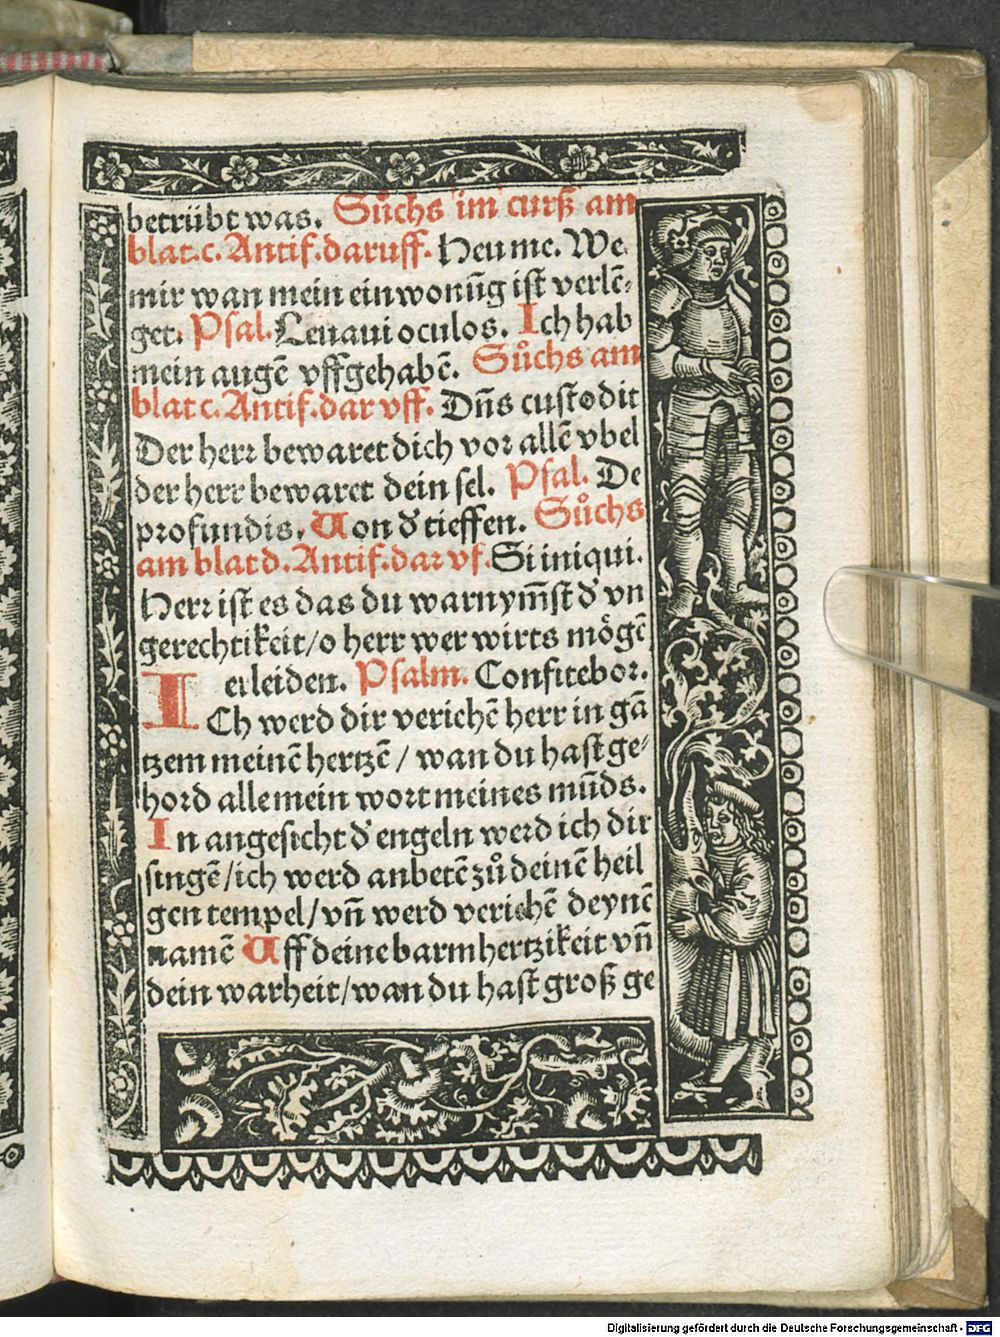 betrübt was. Sůchs im curß am
blat.c. Antif.daruff. Heu me. We
mir wan mein einwonūg ist verlē-
get. Psal. Leuaui oculos. Ich hab
mein augē vffgehabē. Sůchs am
blat c. Antif.dar vff. Dn̄s custodit
Der herr bewaret dich vor allē vbel
der herr bewaret dein sel. Psal. De
profundis. Uon d' tieffen. Sůchs
am blat d. Antif.dar vf. Si iniqui.
Herr ist es das du warnym̄st d' vn
gerechtikeit/o herr wer wirts mögē
erleiden. Psalm. Confitebor.
ICh werd dir verichē herr in gā
tzem meinē hertzē / wan du hast ge-
hord alle mein wort meines mūds.
In angesicht d' engeln werd ich dir
singē/ich werd anbetē zů deinē heil
gen tempel/vn̄ werd verichē deynē
namē Uff deine barmhertzikeit vn̄
dein warheit/wan du hast groß ge
Digitalisierung gefördert durch die Deutsche Forschungsgemeinschaft - DFG